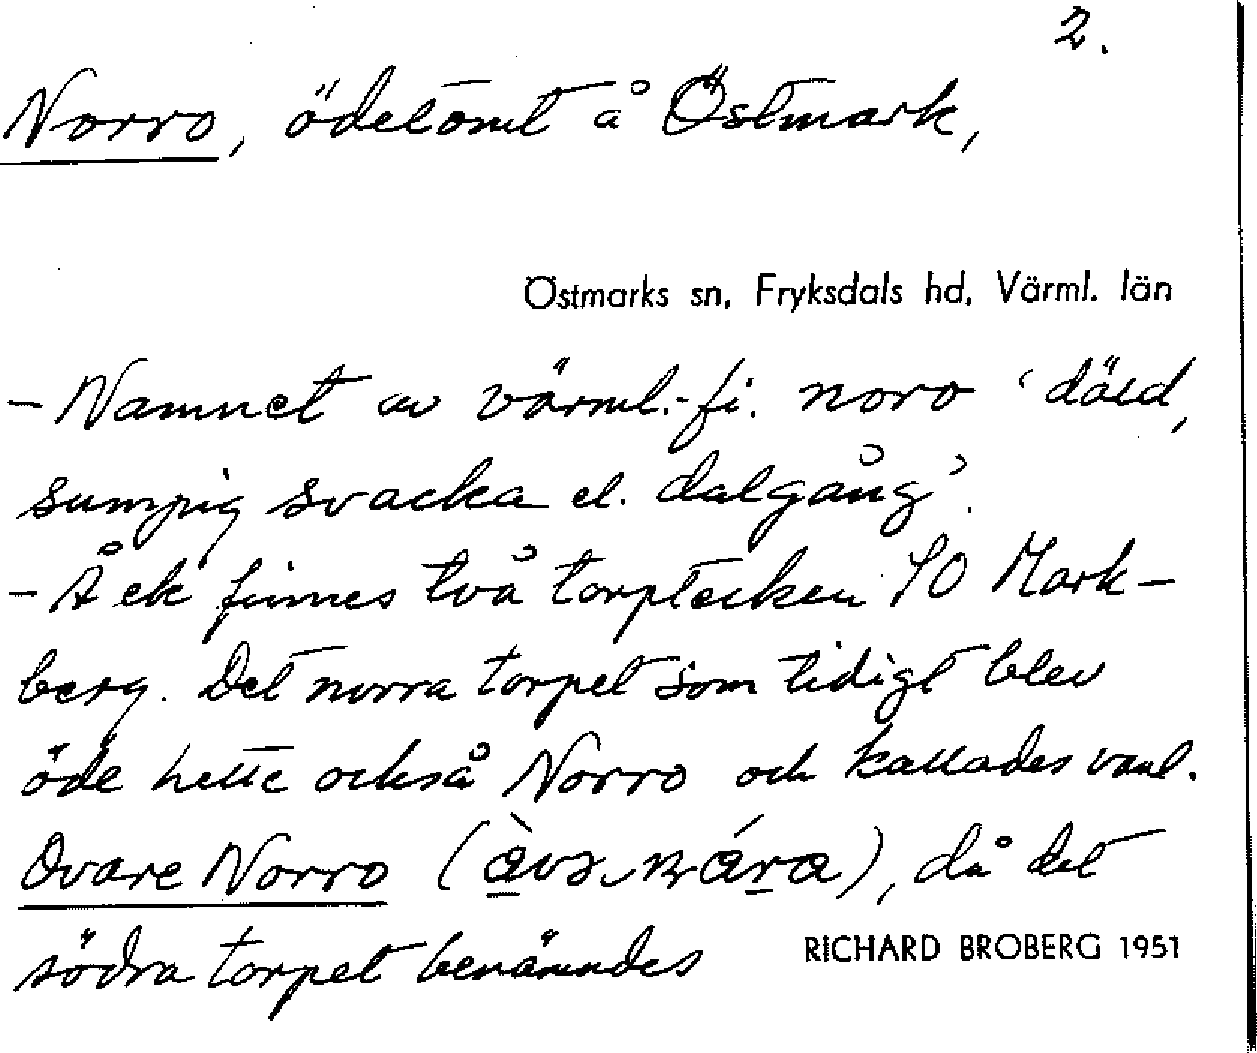 2.
Norro, ödetomt å Östmark,
Östmarks sn, Fryksdals hd, Värml. län
- Namnet av värml.-fi. noro ‘däld,
sumpig svacka el. dalgång’.
- Å ek finnes två torptecken SO Mark-
berg. Det norra torpet som tidigt blev
öde hette också Norro och kallades vanl.
Ovare Norro (), då det
södra torpet benämndes
RICHARD BROBERG 1951